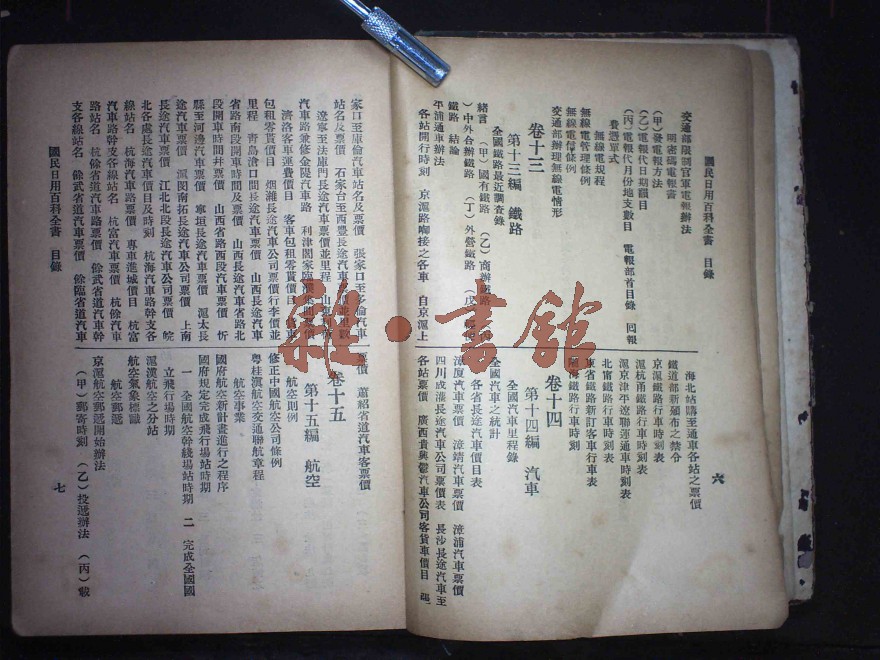 國民日用百科全書 目錄
六
交通部限制官軍電報辦法
明密碼電報書
(甲)發電報方法
(乙)電報代日期韻目
(丙)電報代月份地支數目 電報部首目錄 回報
費憑單式
無線電規程
無線電管理條例
無線電信條例
交通部辦理無線電情形
卷十三
第十三編 鐵路
全國鐵路最近調查錄
緒言 (甲)國有鐵路 (乙)商辦鐵路
)中外合辦鐵路 (丁)外營鐵路
鐵路 結論
平浦通車辦法
各站開行時刻 京滬路啣接之各車 自京滬上
海北站購至通車各站之票價
鐵道部新頒布之禁令
京滬鐵路行車時刻表
滬杭甬鐵路行車時刻表
滬京津平遼聯運通車時刻表
北甯鐵路行車時刻表
東省鐵路新訂客車行車表
隴海鐵路行車時刻表
卷十四
第十四編 汽車
全國汽車里程錄
全國汽車之統計
各省長途汽車價目表
漳廈汽車票價 漳靖汽車票價 漳浦汽車票價
四川成灌長途汽車公司票價表 長沙長途汽車至
各站票價 廣西貴興鬱汽車公司客貨車價目
家口至庫倫汽車站名及票價 張家口至多倫汽車
站名及票價 石家台至西豐長途汽車
遼寧至法庫門長途汽車票價並里程
汽車路兼修金隄汽車路 利津閻家
濟洛客車運費價目 客車包租零賃價目
包租零賃價目 烟濰長途汽車公司票價行李價並
里程 青島滄口間長途汽車票價 山西長途汽車
省路南段開車時間及票價 山西長途汽車省路北
段開車時間并票價 山西省路西段汽車票價 忻
縣至河邊汽車票價 寧垣長途汽車票價 滬太長
途汽車票價 滬閔南拓長途汽車公司票價 上南
長途汽車公司票價 江北北段長途汽車公司票價 皖
北各處長途汽車價目及時刻 杭海汽車路幹支各
線站名 杭海汽車路票價 專車進城價目 杭富
汽車路幹支各線站名 杭富汽車票價 杭徐汽車
路站名 杭徐省道汽車票價 餘武省道汽車幹
支各線站名 餘武省道汽車票價 餘臨省道汽車
票價 蕭紹省道汽車客票價
卷十五
第十五編 航空
航空則例
修正中國航空公司條例
粵桂滇航空交通聯航章程
航空事業
國府航空新計畫進行之程序
國府規定完成飛行場站時期
一 全國航空幹綫場站時期 二 完成全國國
立飛行場時期
滬漢航空之分站
航空氣象標識
航空郵遞
京滬航空郵遞開始辦法
(甲)郵寄時刻 (乙)投遞辦法 (丙)載
國民日用百科全書 目錄
七
雜·書館